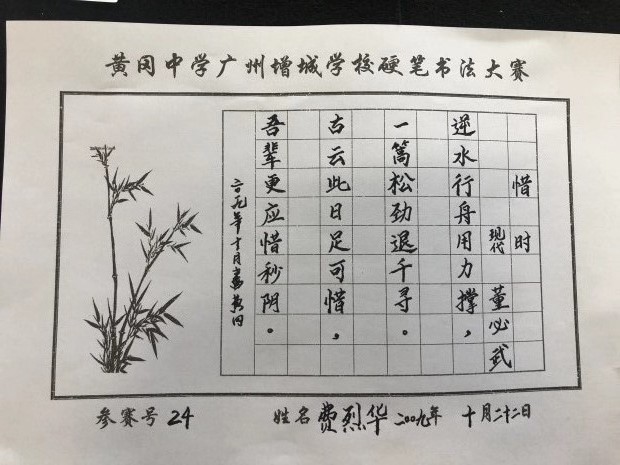 黄冈中学广州增城学校硬笔书法大赛
惜时
现代 董必武
逆水行舟用力撑，
一篙松劲退千寻。
古云此日足可惜，
吾辈更应惜秒阴。
二〇一九年十月书黄冈
参赛号 24
姓名 费烈华 二00九年 十月二十二日